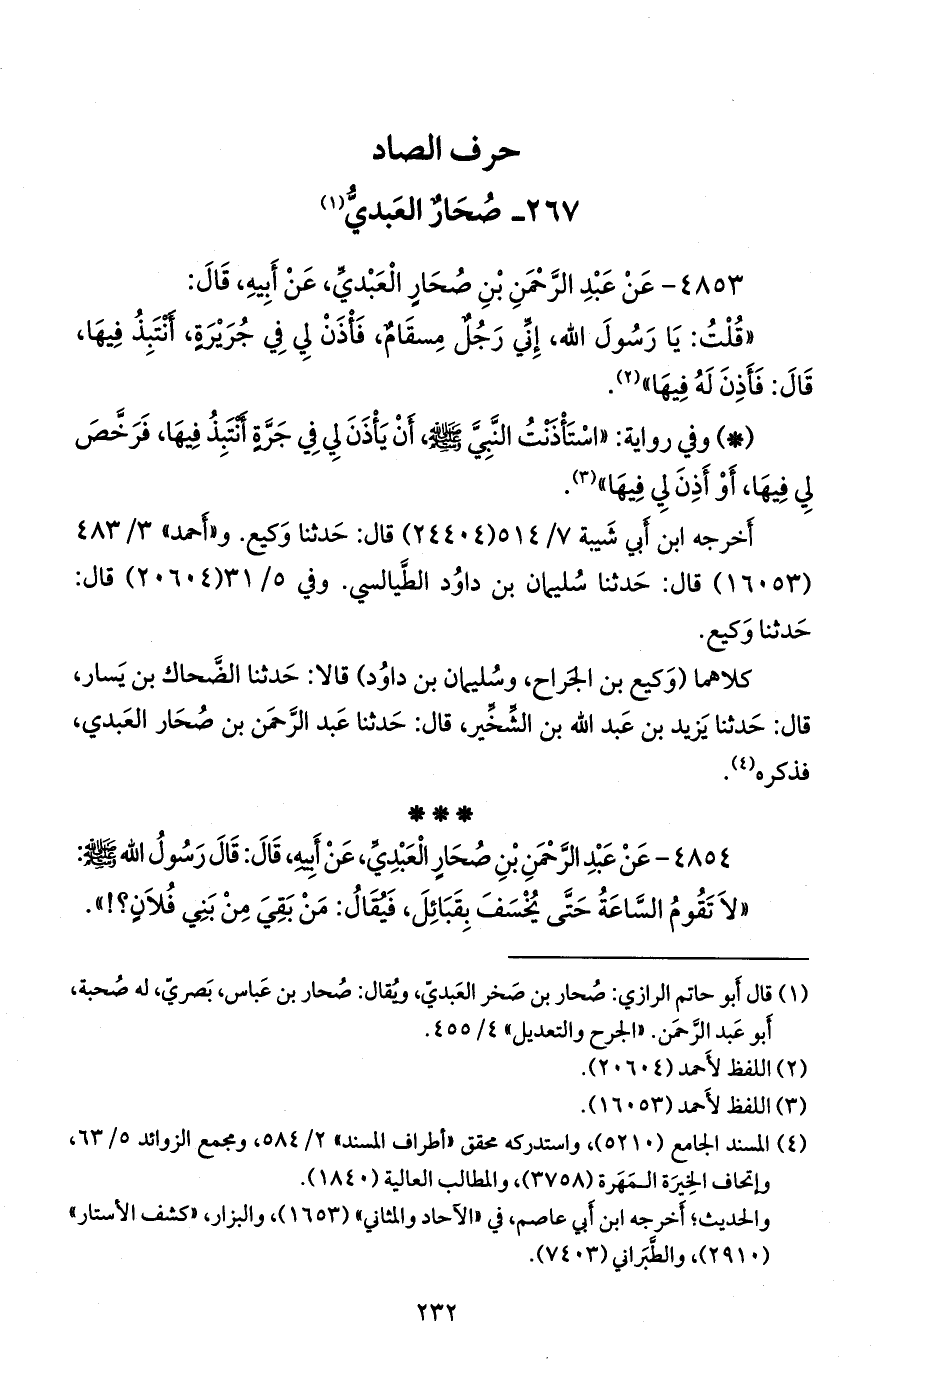 حرف الصاد
٢٦٧ـ صُحَارٌ العَبديُّ(١)
٤٨٥٣- عَنْ عَبْدِ الرَّحْمَنِ بْنِ صُحَارٍ الْعَبْدِيِّ، عَنْ أَبِيهِ، قَالَ:
«قُلْتُ: يَا رَسُولَ الله، إِنِّي رَجُلٌ مِسقَامٌ، فَأْذَنْ لِي فِي جُرَيْرَةٍ، أَنْتَبِذُ فِيهَا،
قَالَ: فَأَذِنَ لَهُ فِيهَا»(٢).
(*) وفي رواية: «اسْتَأْذَنْتُ النَّبِيَّ ﷺ، أَنْ يَأْذَنَ لِي فِي جَرَّةٍ أَنْتَبِذُ فِيهَا، فَرَخَّصَ
لِي فِيهَا، أَوْ أَذِنَ لِي فِيهَا»(٣).
أخرجه ابن أبي شَيبة ٧/ ٥١٤(٢٤٤٠٤) قال: حَدثنا وَكيع. و«أحمد» ٣/ ٤٨٣
(١٦٠٥٣) قال: حَدثنا سُليمان بن داوُد الطَّيالسي. وفي ٥/ ٣١(٢٠٦٠٤) قال:
حَدثنا وَكيع.
كلاهما (وَكيع بن الجَراح، وسُليمان بن داوُد) قالا: حَدثنا الضَّحاك بن يَسار،
قال: حَدثنا يَزيد بن عَبد الله بن الشِّخِّير، قال: حَدثنا عَبد الرَّحمَن بن صُحَار العَبدي،
فذكره(٤).
* * *
٤٨٥٤- عَنْ عَبْدِ الرَّحْمَنِ بْنِ صُحَارٍ الْعَبْدِيِّ، عَنْ أَبِيهِ، قَالَ: قَالَ رَسُولُ الله ﷺ:
«لاَ تَقُومُ السَّاعَةُ حَتَّى يُخْسَفَ بِقَبَائِلَ، فَيُقَالُ: مَنْ بَقِيَ مِنْ بَنِي فُلاَنٍ؟!».
(١) قال أَبو حاتم الرازي: صُحار بن صَخر العَبديّ، ويُقال: صُحار بن عَباس، بَصريّ، له صُحبة،
أَبو عَبد الرَّحمَن. «الجرح والتعديل» ٤/ ٤٥٥.
(٢) اللفظ لأَحمد (٢٠٦٠٤).
(٣) اللفظ لأَحمد (١٦٠٥٣).
(٤) المسند الجامع (٥٢١٠)، واستدركه محقق «أطراف المسند» ٢/ ٥٨٤، ومجمع الزوائد ٥/ ٦٣،
وإتحاف الخِيرَة المَهَرة (٣٧٥٨)، والمطالب العالية (١٨٤٠).
والحديث؛ أَخرجه ابن أَبي عاصم، في «الآحاد والمثاني» (١٦٥٣)، والبزار، «كشف الأستار»
(٢٩١٠)، والطَّبَراني (٧٤٠٣).
٢٣٢